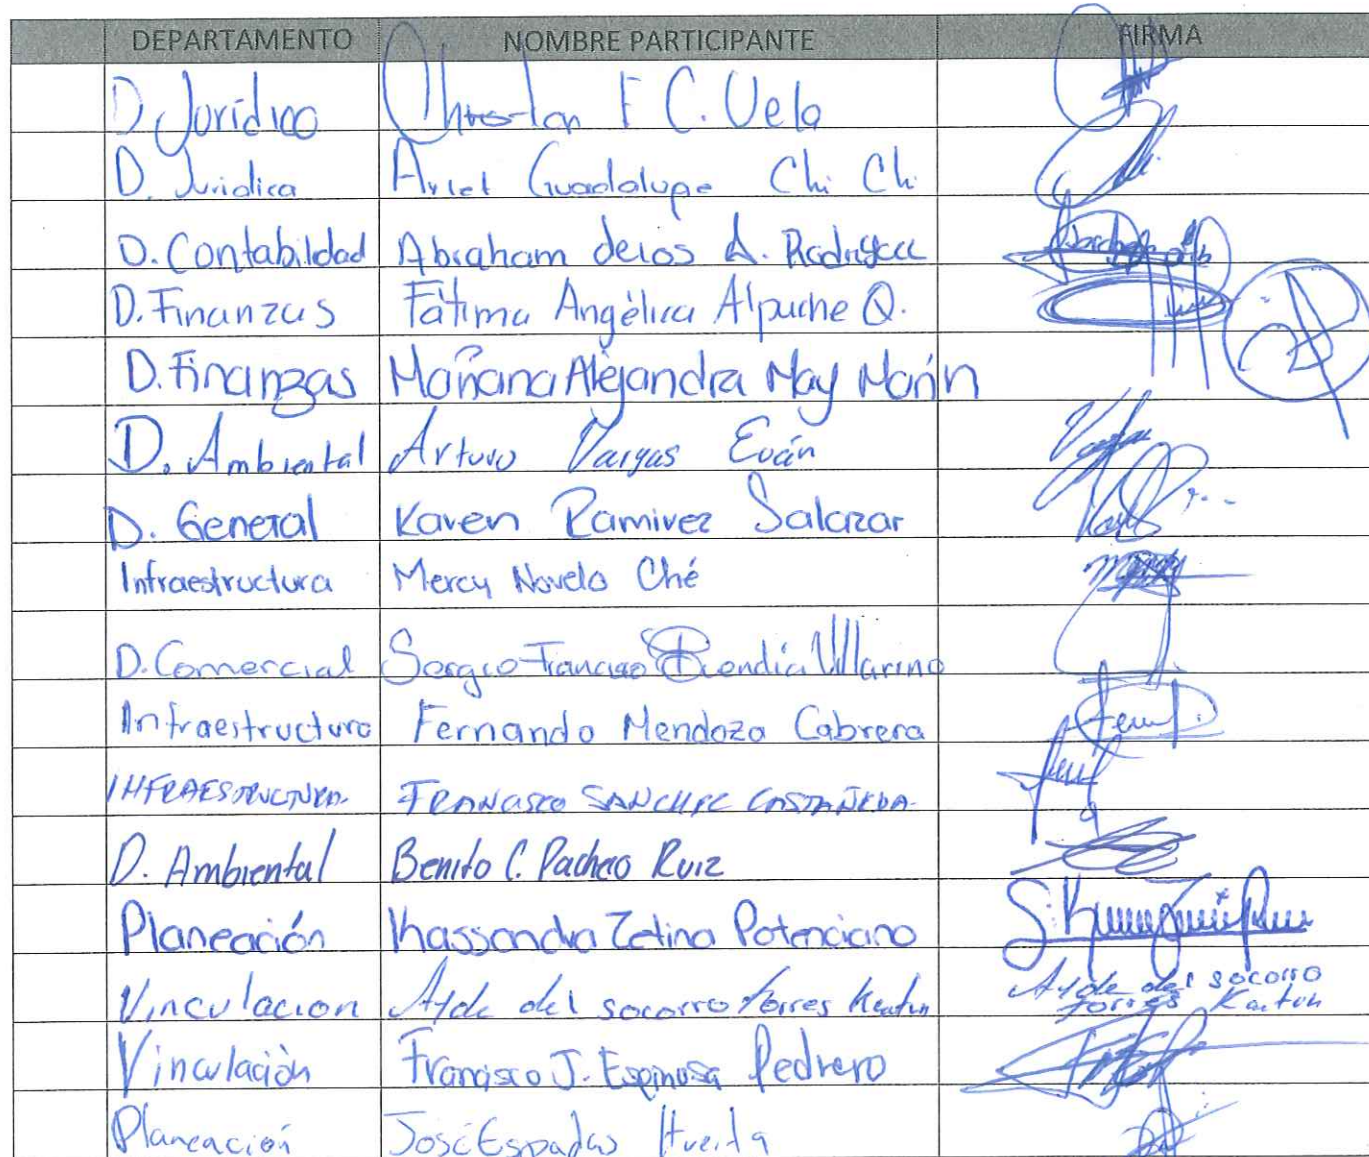 DEPARTAMENTO NOMBRE PARTICIPANTE FIRMA
D. Jurídico F C. Vela
D. Juridica Guadalupe Chi Chi
D. Contabilidad Abraham de los A.
D. Finanzas Fátima Angélica Alpuche Q.
D. Finanzas Mariana Alejandra May Marín
D. Ambiental Arturo Vargas Euán
D. General Karen Ramirez Salazar
Infraestructura Mercy Novelo Ché
D. Comercial Sergio Francisco Villarino
Infraestructura Fernando Mendoza Cabrera
INFRAESTRUCTURA. FRANCISCO SANCHEZ CASTAÑEDA.
D. Ambiental Benito C. Pacheco Ruiz
Planeación Khassandra Zetina Potenciano
Vinculacion del socorro torres Kantun del socorro
torres Kantun
Vinculaciòn Francisco J. Espinosa Pedrero
Planeación José Espadas Huerta